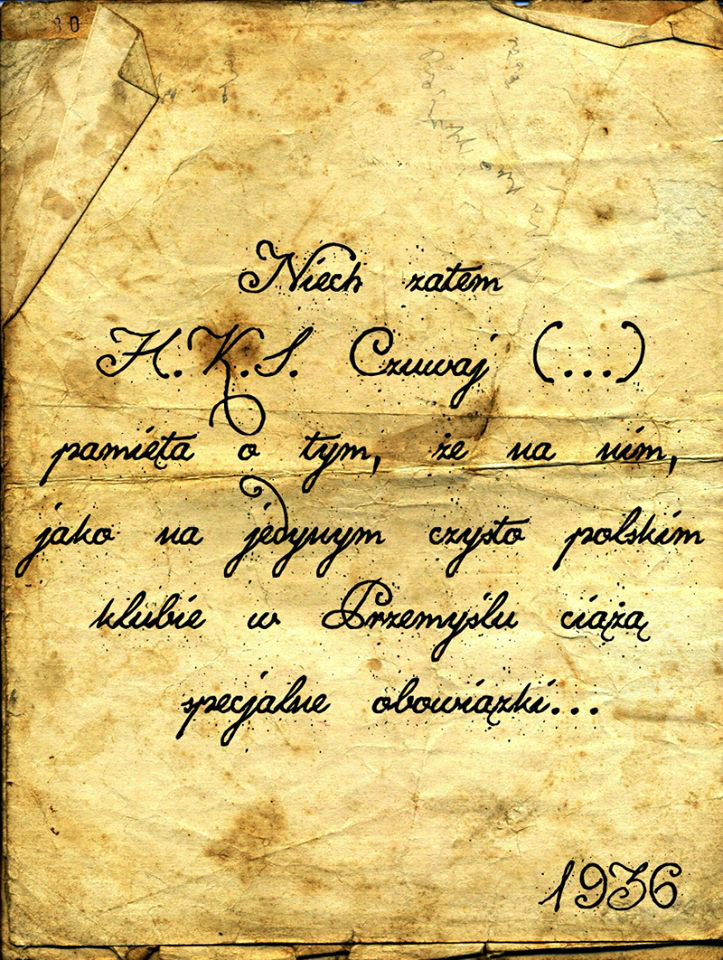 Niech zatem
H.K.S. Czuwaj (...)
pamięta o tym, że na nim,
jako na jedynym czysto polskim
klubie w Przemyślu ciążą
specjalne obowiązki...
1936